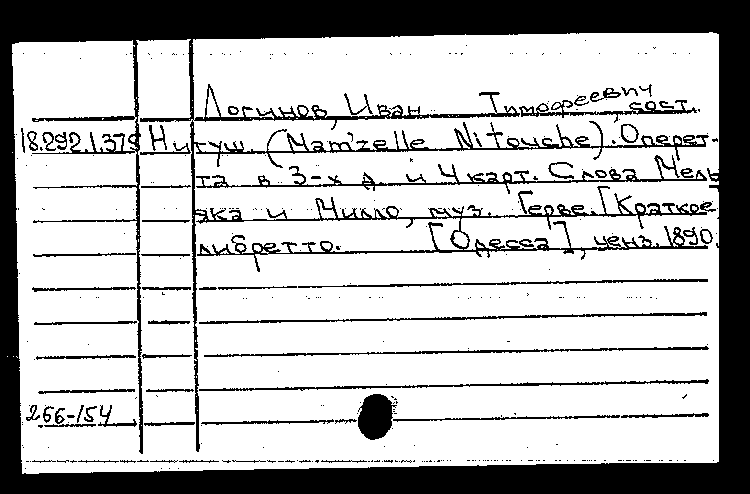 Логинов, Иван Тимофеевич, сост.
18.292.1.379 Нитуш. (Mam'zelle Nitouche). Оперет-
та в 3-х д. и 4 карт. Слова Мель
яка и Милло, муз. Герве. [Краткое
либретто. [Одесса], ценз. 1890.
266-154